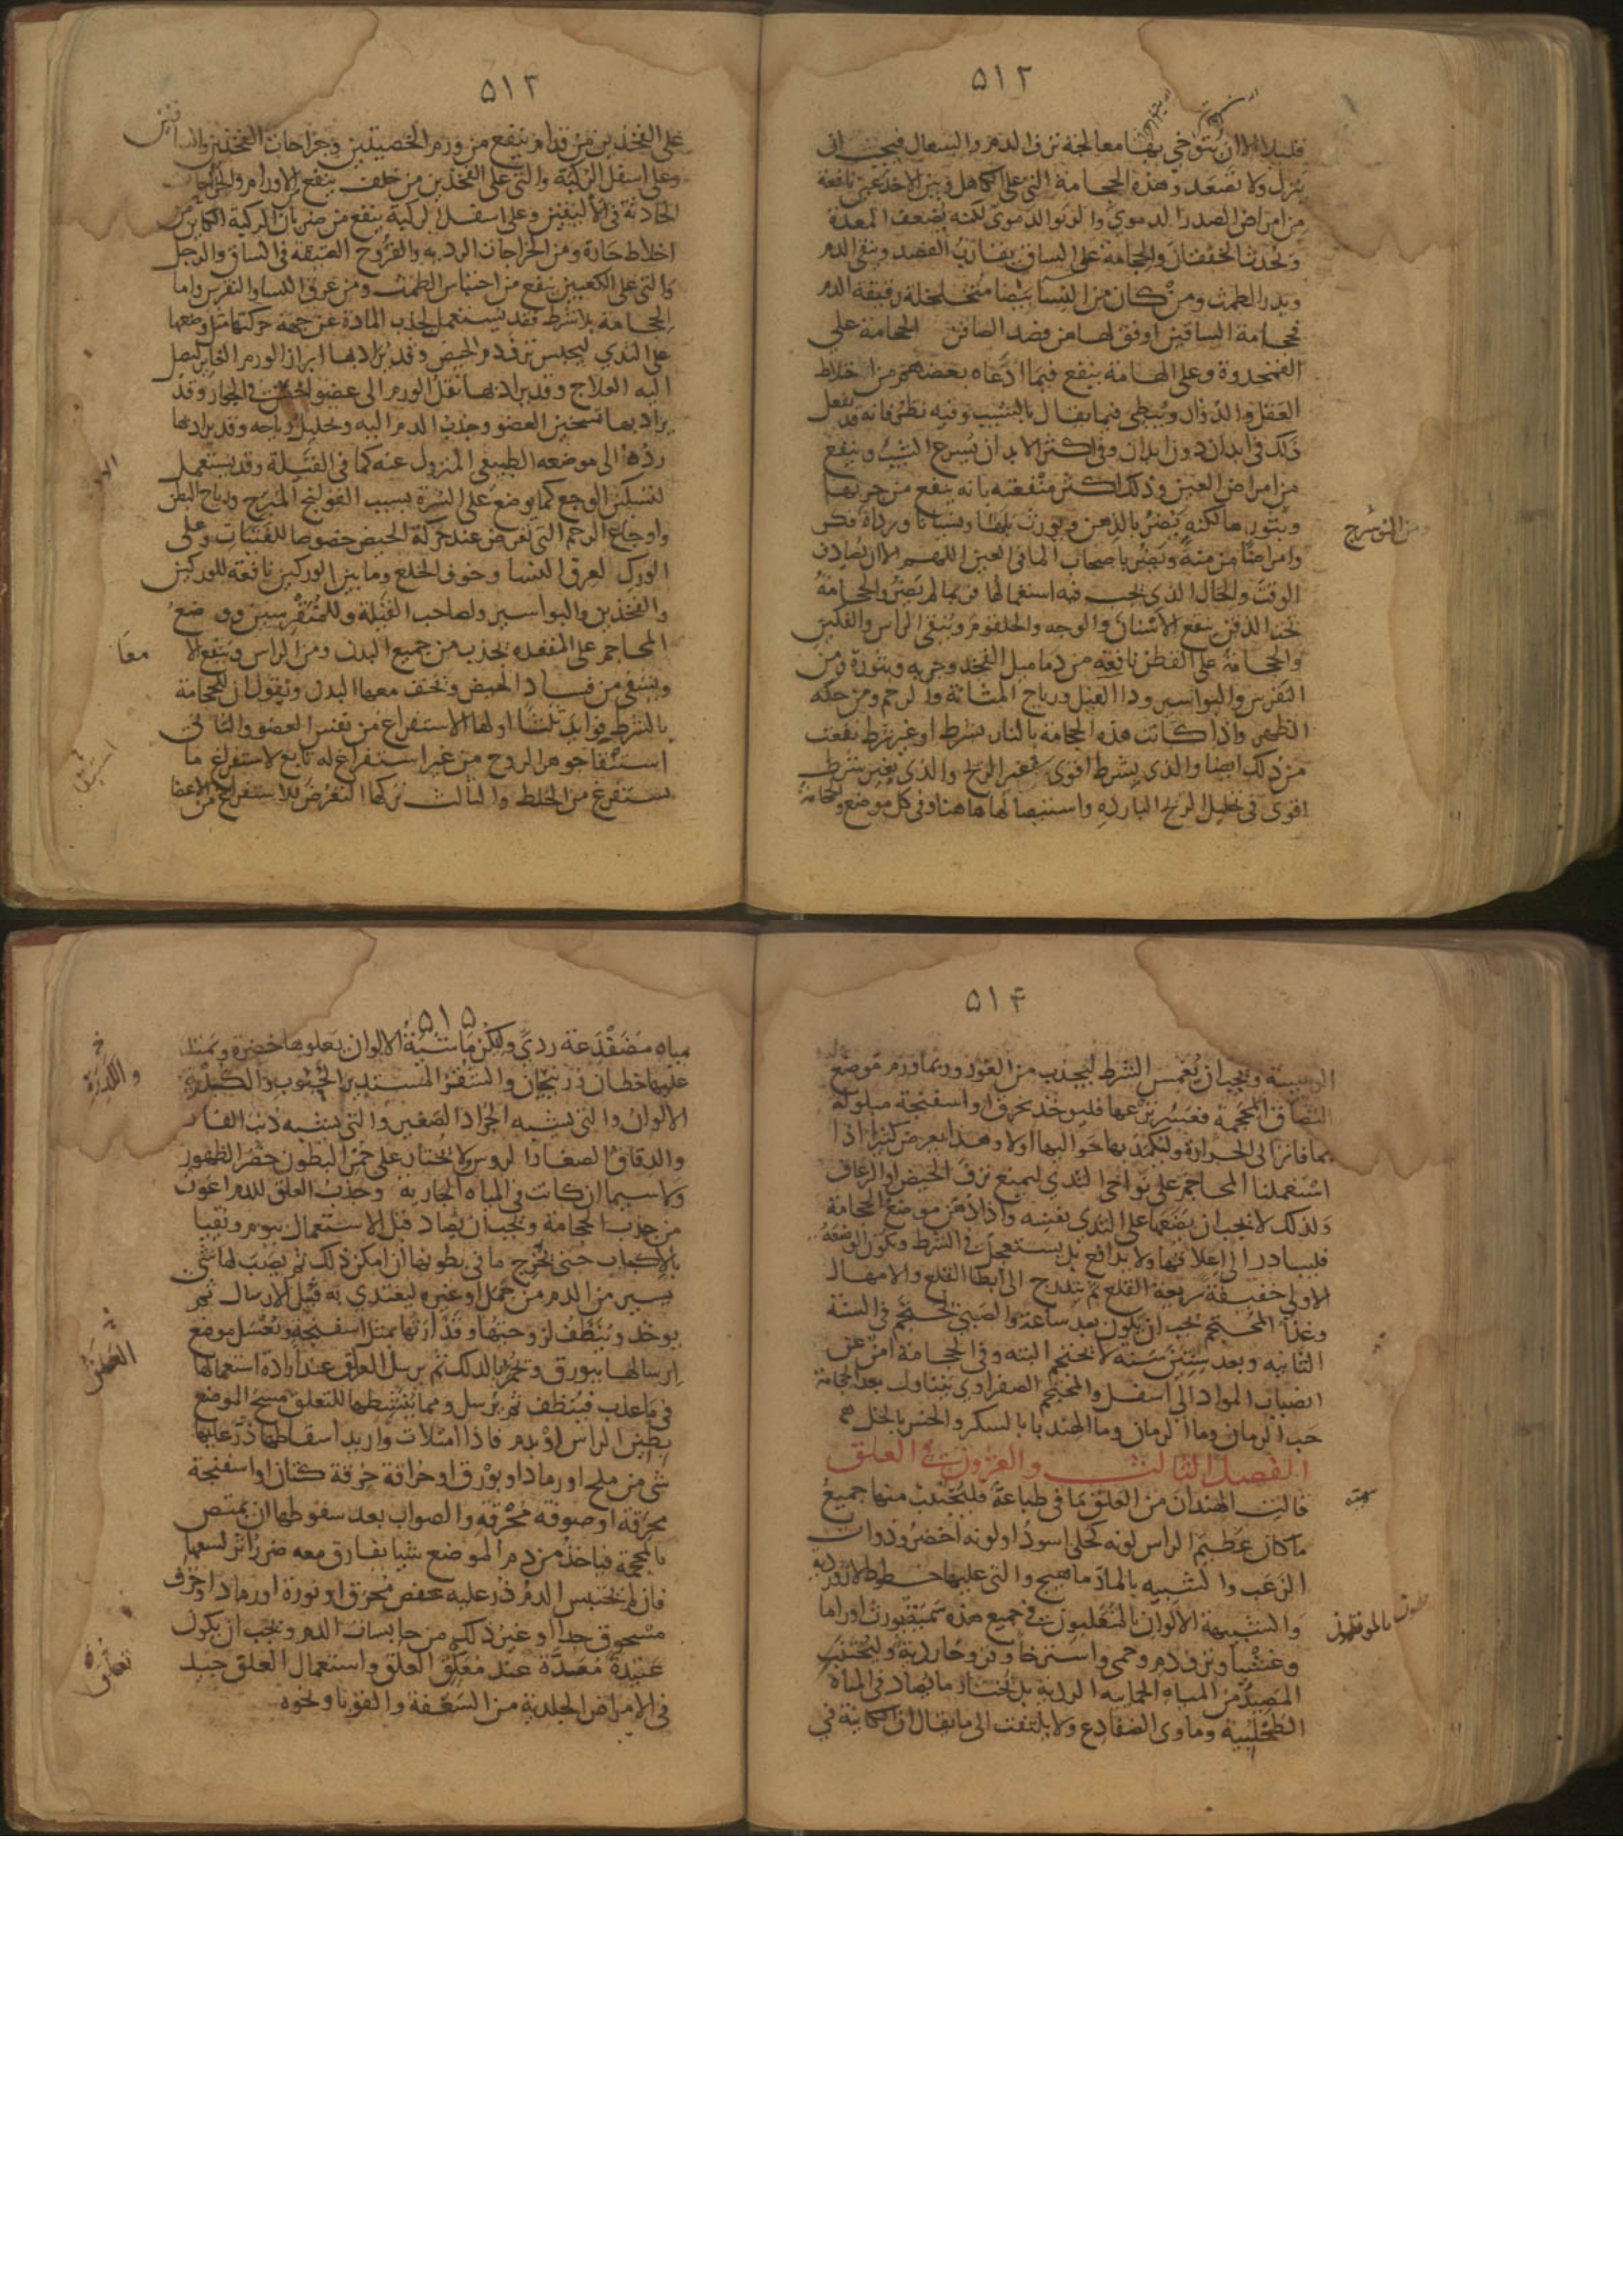 ٥١٢
قليلا الا ان يتوخى بها معالجة نزف الدم والسعال فيجب ان
ينزل ولا تصعد وهذه الحجامة التي على الكاهل وبين الاخدعين نافعة
من امراض الصدر الدموي والربو الدموي لكنه يضعف المعدة
وتحدث الخفقان والحجامة على الساق يقارب الفصد وينقي الدم
ويدر الطمث ومن كان من النسا بيضا متخلخلة رقيقة الدم
فحجامة الساقين اوفق لها من فصد الصافن الحجامة على
القمحدوة وعلى الهامة ينفع فيما ادعاه بعضهم من اختلاط
العقل والدوار ويبطي فيما يقال بالشيب وفيه نظر فانه قد يفعل
ذلك في ابدان دون ابدان وفي اكثر الابدان يسرع الشيب وينفع
من امراض العين وذلك اكثر منفعته بانه ينفع من جربها
وبثورها لكنه يضر بالذهن ويورث بلها ونسيانا ورداة فكر
ومن المورسرج
وامراضا مزمنة ويضر باصحاب الما في العين اللهم الا ان يصادف
الوقت والحال الذي يجب فيه استعمالها فربما لم يضر والحجامة
تحت الذقن ينفع الاسنان والوجه والحلقوم وينقي الراس والفكين
والحجامة على القطن نافعة من دماميل الفخذ وجربه وبثوره ومن
النقرس والبواسير وداالفيل ورياح المثانة والرحم ومن حكة
الظهر واذا كانت هذه الحجامة بالنار بشرط او غير شرط نفعت
من ذلك ايضا والذي بشرط اقوى في غير الريح والذي بغير شرط
اقوى في تحليل الريح الباردة واستيصالها هاهنا وفي كل موضع والحجامة
٥١٣
على الفخذين من قدام ينفع من ورم الخصيتين وخراجات الفخذين والساقين
وعلى اسفل الركبة والتي على الفخذين من خلف ينفع من الاورام والخراجات
الحادثة في الاليتين وعلى اسفل الركبة ينفع من ضربان الركبة الكاين من
اخلاط حارة ومن الخراجات الردية والقروح العتيقة في الساق والرجل
والتي على الكعبين ينفع من احتباس الطمث ومن عرق النسا والنقرس واما
الحجامة بلا شرط فقد يستعمل لجذب المادة عن جهة حركتها مثل وضعها
على الثدي ليحبس نزف دم الحيض وقد يراد بها ابراز الورم الغاير ليصل
اليه العلاج وقد يراد بها نقل الورم الى عضو اخس في الجوار وقد
يراد بها تسخين العضو وجذب الدم اليه وتحليل رياحه وقد يراد بها
رده الى موضعه الطبيعي المنزول عنه كما في القيلة وقد يستعمل
لتسكين الوجع كما يوضع على السرة بسبب القولنج المبرح ورياح البطن
واوجاع الرحم التي تعرض عند حركة الحيض خصوصا للفتيات وعلى
الورك لعرق النسا وخوف الخلع وما بين الوركين نافعة للوركين
والفخذين والبواسير ولصاحب القيلة وللمنقرسين ووضع
المحاجم على المقعدة يجذب من جميع البدن ومن الراس وينفع الا
معا
ويشفي من فساد الحيض ويخف معها البدن ونقول ان للحجامة
بالشرط فوايد ثلثا اولها الاستفراغ من نفس العضو والثاني
استبقا جوهر الروح من غير استفراغ له تابع لاستفراغ ما
استبقى
يستفرغ من الخلط والثالث تركها التعرض للاستفراغ من الاعضا
٥١٤
الرييسة ويجب ان يغمس الشرط ليجذب من الغور وربما ورم موضع
التصاق المحجمة فعسر نزعها فليوخذ بخرق او اسفنجة مبلولة
بما فاتر الى الحرارة وليكمد بها حواليها اولا وهذا يعرض كثيرا اذا
استعملنا المحاجم على نواحي الثدي ليمنع نزف الحيض او الرعاف
ولذلك لا يجب ان يضعها على الثدي نفسه واذا دهن موضع الحجامة
فليبادر الى اعلاقها ولا يدافع بل يستعجل في الشرط وتكون الوضعة
الاولى خفيفة سريعة القلع ثم يتدرج الى ابطا القلع والامهال
وغذا المحتجم يجب ان يكون بعد ساعة والصبي يحتجم في السنة
الثانية وبعد ستين سنة لا يحتجم البتة وفي الحجامة امن من
انصباب المواد الى اسفل والمحتجم الصفراوي يتناول بعد الحجامة
حب الرمان وما الرمان وما الهندبا بالسكر والخس بالخل
الفصل الثالث والعشرون في العلق
قالت الهند ان من العلق ما في طباعه فليجتنب منها جميع
سمية
ما كان عظيم الراس لونه كحلي اسود او لونه اخضر وذوات
الزغب والشبيه بالمارماهيج والتي عليها خطوط لازوردية
والشبيهة الالوان بالبوقلمون في جميع هذه سمية يورث اوراما
وغشيا ونزف دم وحمى واسترخا وقروحا ردية وليجتنب
المصيد من المياه الحمايية الردية بل يختار ما يصاد في المياه
الطحلبية وماوى الضفادع ولا يلتفت الى ما يقال ان الكاينة في
٥١٥
مياه مضفدعة ردي ولتكن ماشية الالوان يعلوها خضرة ويمتد
عليها خطان زرنيخيان والشقر المستديرة الجنوب والكبدية
الالوان والتي يشبه الجراد الصغير والتي يشبه ذنب الفار
والدقاق الصغار الروس ولا يختار على حمر البطون خضر الظهور
ولا سيما ان كانت في المياه الجارية وجذب العلق للدم اغور
من جذب الحجامة ويجب ان يصاد قبل الاستعمال بيوم ويقيا
بالاكباب حتى يخرج ما في بطونها ان امكن ذلك ثم يصب لها شي
يسير من الدم من حمل او غيره ليغتذي به قبل الارسال ثم
يوخذ وينظف لزوجتها وقذارتها بمثل اسفنجة ويغسل موضع
ارسالها ببورق وتحمر بالدلك ثم يرسل العلق عند ارادة استعمالها
في ما عذب فينظف ثم يرسل ومما ينشطها للتعلق مسح الموضع
بطين الراس او بدم فاذا امتلات واريد اسقاطها ذر عليها
شي من ملح او رماد او بورق او حراقة خرقة كتان او اسفنجة
محرقة او صوفة محرقة والصواب بعد سقوطها ان يمتص
بالمحجمة فياخذ من دم الموضع شيا يفارق معه ضرر اثر لسعها
فان لم يحتبس الدم ذر عليه عفص محرق او نورة او رماد او خزف
مسحوق جدا او غير ذلك من حابسات الدم ويجب ان يكون
عتيدة معدة عند معلق العلق واستعمال العلق جيد
في الامراض الجلدية من السعفة والقوبا ونحوه